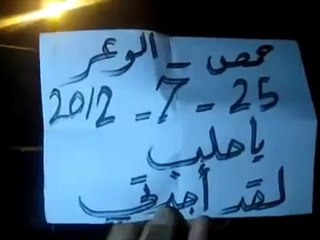 حمص - الوعر
25 - 7 - 2012
يا حلب
لقد أجدتي